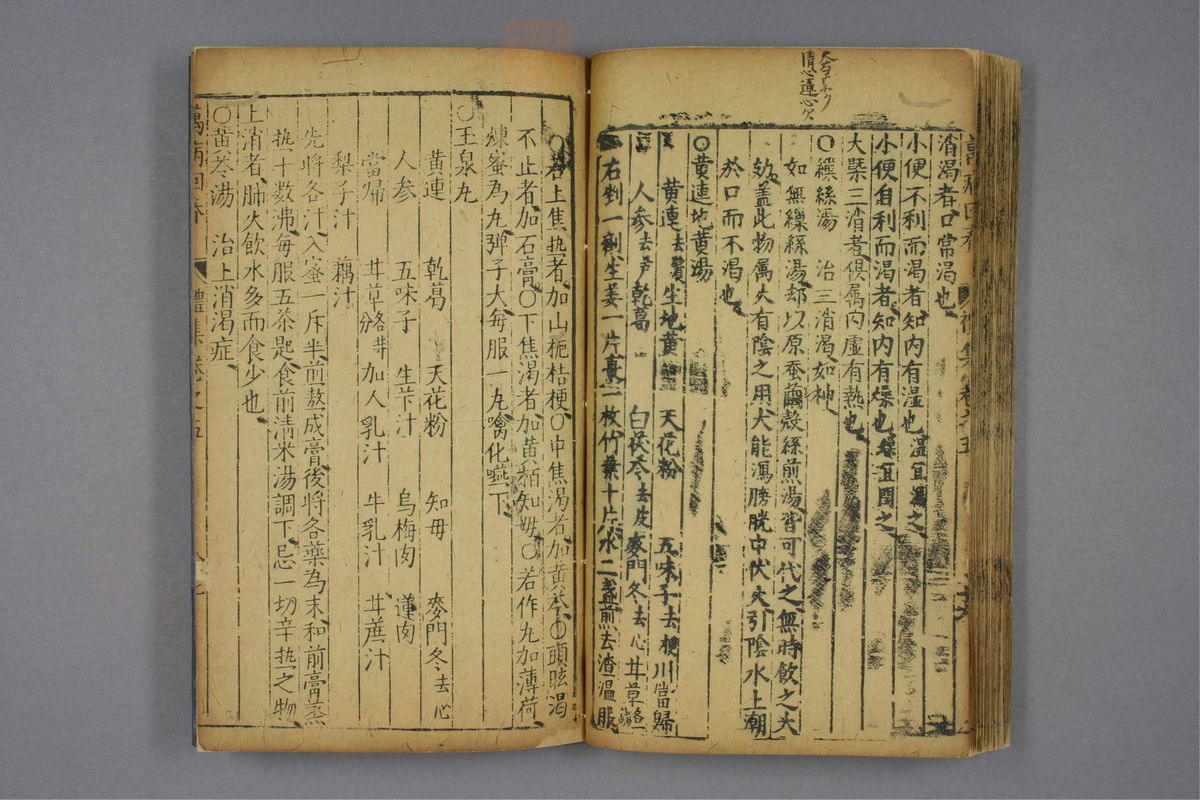 大有
清心蓮心
消渴者口常渴也
小便不利而渴者知内有濕也濕宜瀉之
小便自利而渴者知内有燥也燥宜潤之
大槩三消者俱属内虛有熱也
〇繅絲湯 治三消渴如神
如無繅絲湯却以原蚕繭殼絲煎湯皆可代之無時飲之大
効盖此物属火有陰之用大能瀉膀胱中伏火引陰水上潮
於口而不渴也
〇黄連地黄湯
黄連去鬚 生地黄 天花粉 五味子去梗 川當歸
人参去芦 乾葛 白茯苓去皮 麥門冬去心 甘草
右剉一劑生姜一片棗一枚竹葉十片水二盞煎去渣温服
〇若上焦热者加山梔桔梗〇中焦渴者加黄芩〇頭眩渴
不止者加石膏〇下焦渴者加黄栢知毋〇若作丸加薄荷
煉蜜為丸弹子大每服一丸噙化嚥下
〇玉泉丸
黄連 乾葛 天花粉 知毋 麥門冬去心
人参 五味子 生苄汁 烏梅肉 蓮肉
當帰 甘草各等分 加人乳汁 牛乳汁 甘蔗汁
梨子汁 藕汁
先將各汁入蜜一斤半煎熬成膏後將各藥為末和前膏蒸
热十数沸每服五茶匙食前清米湯調下忌一切辛热之物
上消者肺火飲水多而食少也
〇黄芩湯 治上消渴症
萬病回春 禮集 卷之五